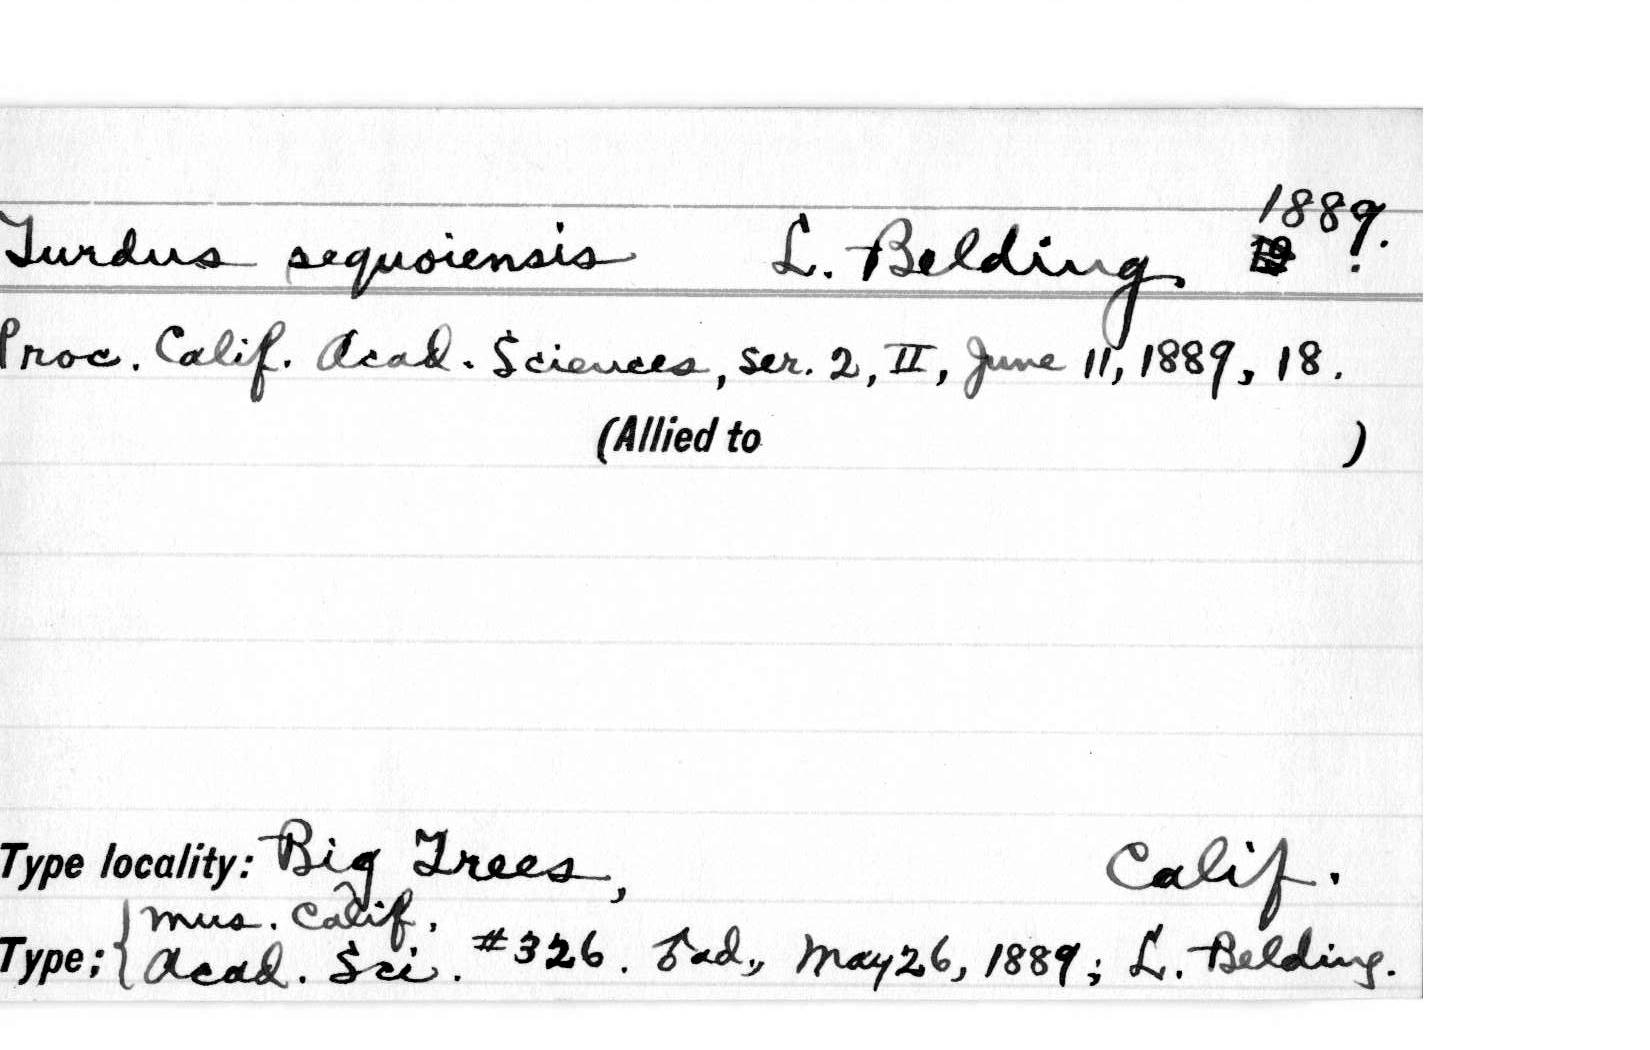 1889.
Turdus sequoiensis L. Belding,
Proc. Calif. Acad. Sciences, ser. 2, II, June 11, 1889, 18.
(Allied to )
Type locality: Big Trees, Calif.
Mus. Calif.
Type; Acad. Sci. #326. ad., May 26, 1889; L. Belding.